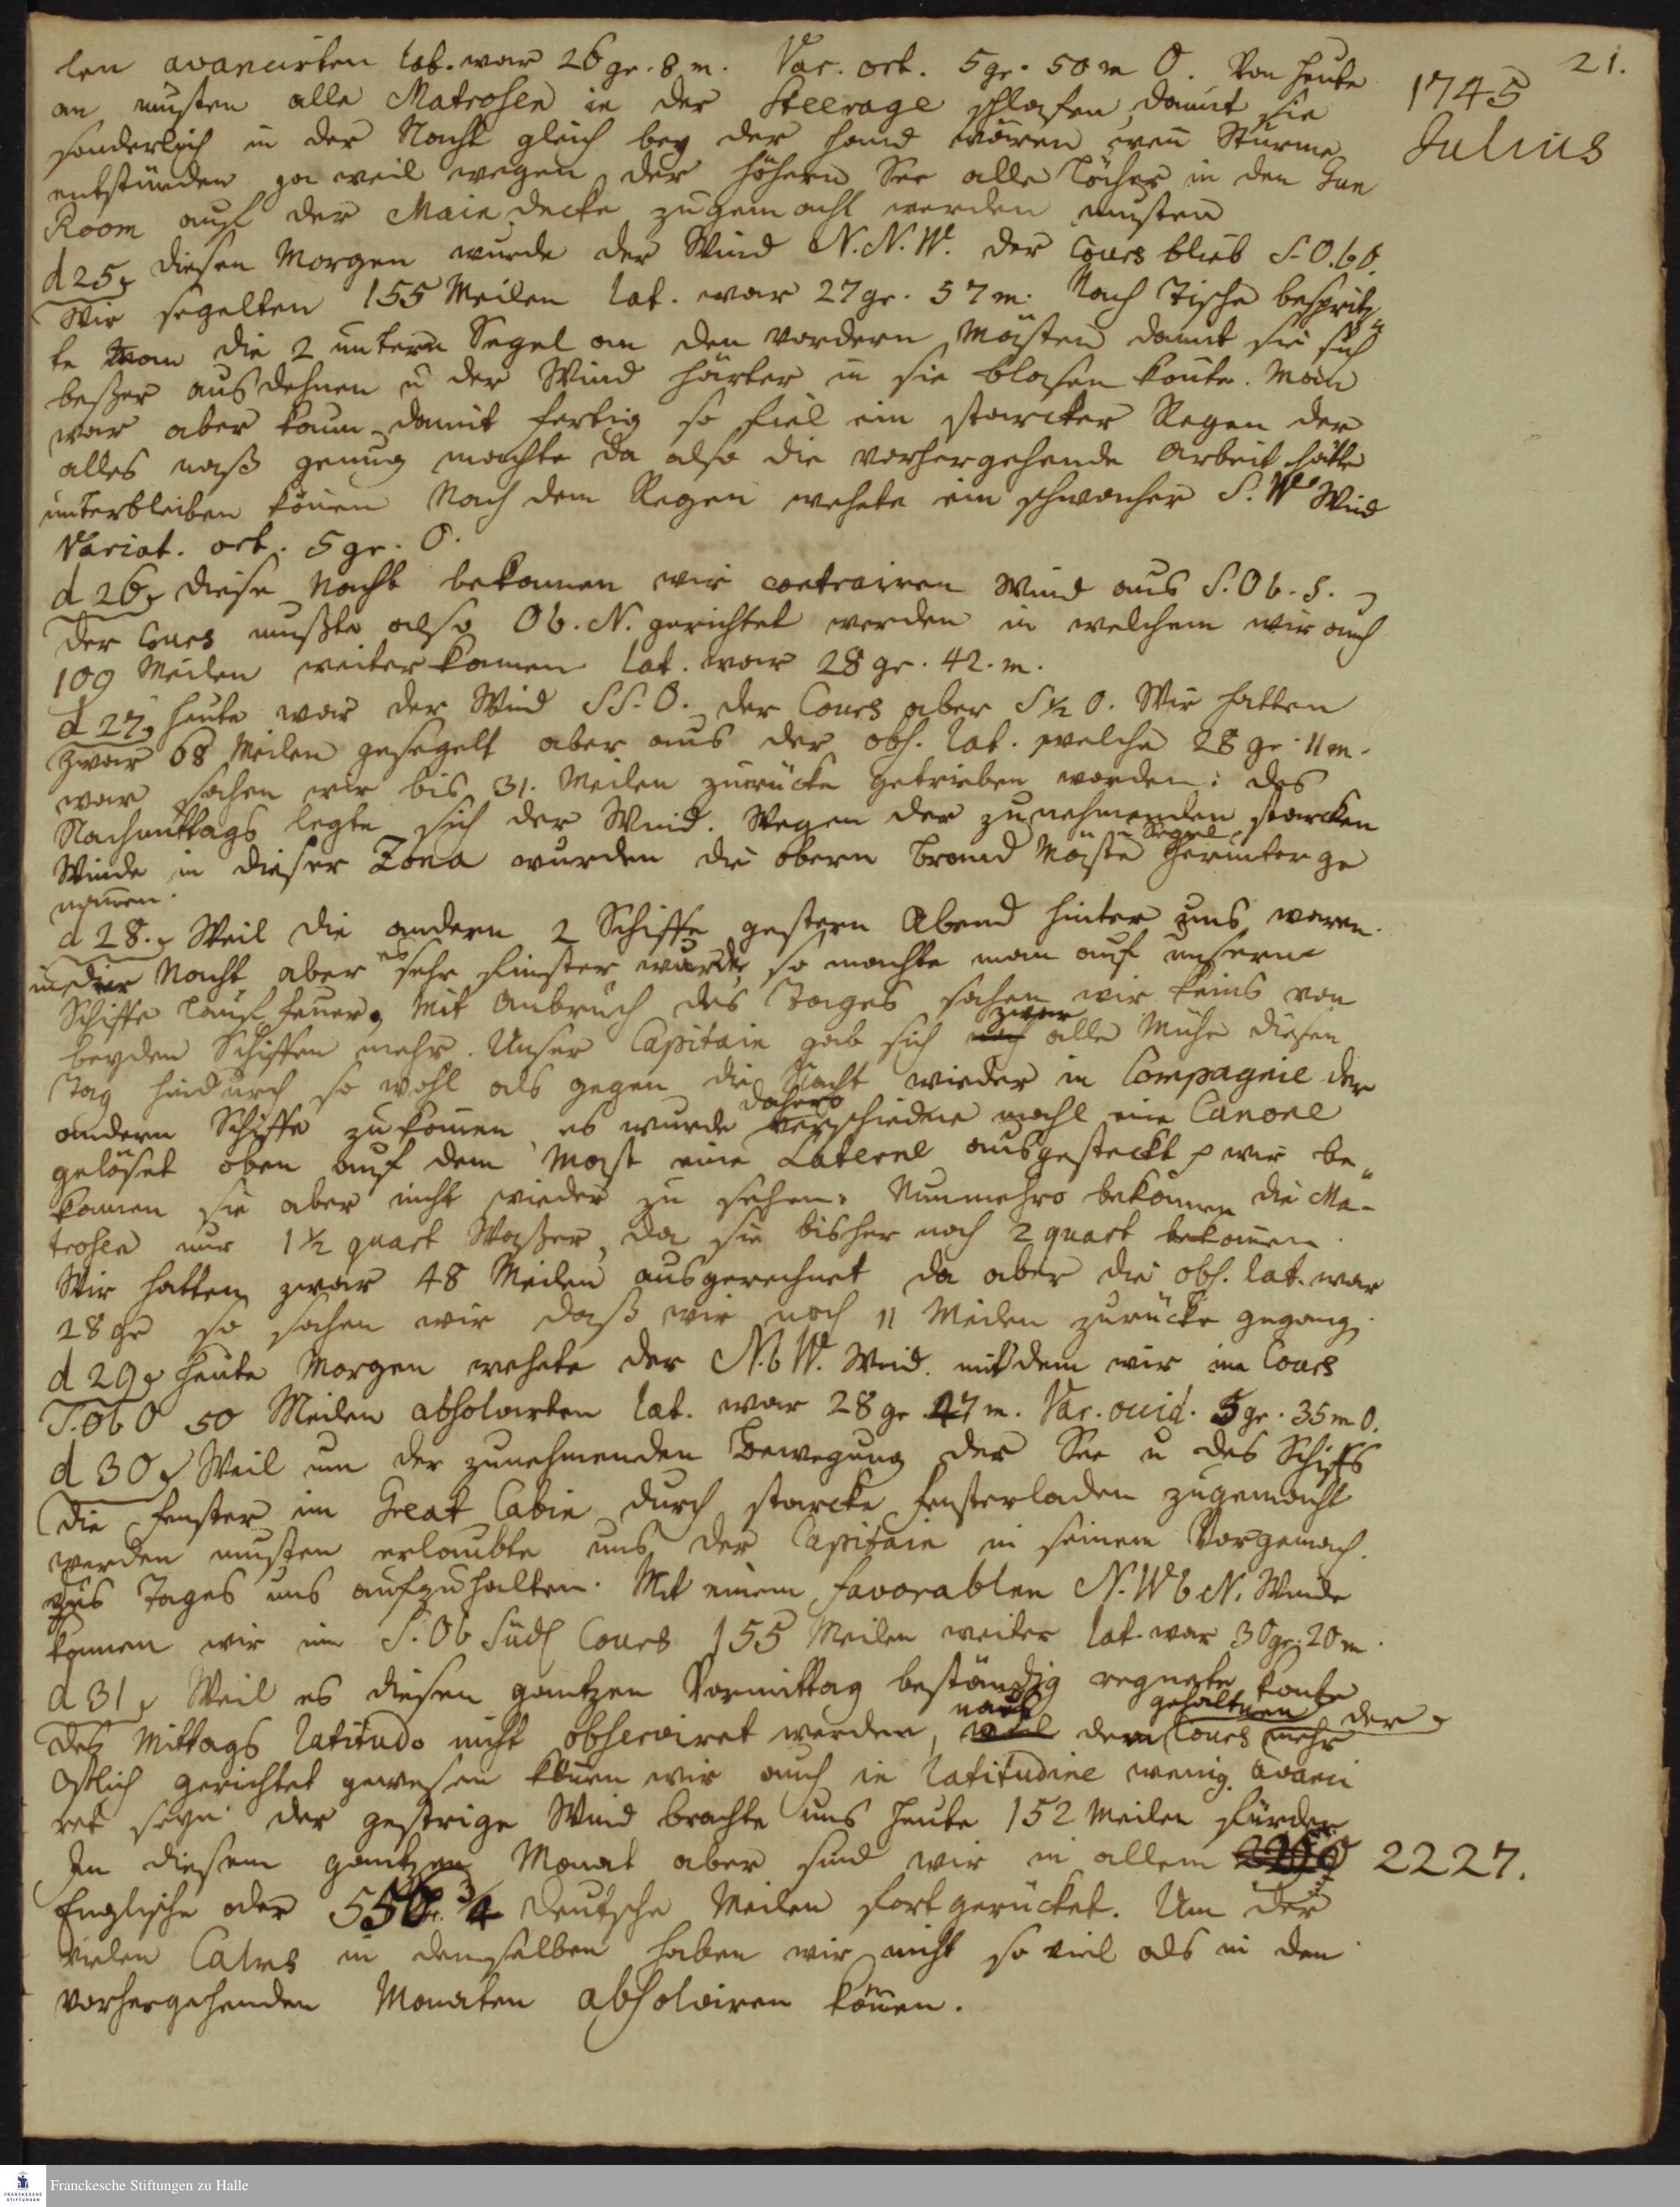 21.
1745
Julius
len avancirten lat. war 26 gr. 8 m. Var. ort. 5 gr. 50 m O. Von heute
an musten alle Matrosen in der Steerage schlafen damit sie
sonderlich in der Nacht gleich bey der Hand wären wen̅ Sturme
entstünden ja weil wegen der höhern See alle Löcher in den Gun
Room auf der Main decke zugemacht werden musten
d 25, diesen Morgen wurde der Wind N.N.W. der Cours blieb S.O.b O.
Wir segelten 155 Meilen lat. war 27 gr. 57 m. Nach Tische besprütz
te man die 2 untern Segel an den vordern Masten damit sie sich
beßer ausdehnen u der Wind härter in sie blasen konte. Man
war aber kaum damit fertig so fiel ein starcker Regen der
alles naß genug machte da also die vorhergehende Arbeit hätte
unterbleiben kön̅en Nach dem Regen wehete ein schwacher S. W Wind
Variat. ort. 5 gr. O.
d 26, diese Nacht bekamen wir contrairen Wind aus S.O b. S.
der Cours mußte also O b. N. gerichtet werden in welchem wir auch
109 Meilen weiter kamen lat. war 28 gr. 42. m.
d 27, heute war der Wind S S. O. der Cours aber S ½ O. Wir hatten
zwar 68 Meilen gesegelt aber aus der obs. lat. welche 28 gr. 11 m.
war sahen wir bis 31. Meilen zurücke getrieben worden: des
Nachmittags legte sich der Wind. Wegen der zunehmenden starcken
Winde in dieser Zona wurden die obern Brand Maste u Segel herunter ge
nom̅en.
d 28., Weil die andern 2 Schiffe gestern Abend hinter uns waren.
in der Nacht aber es sehr finster wurde so machte man auf unserm
Schiffe Lauf feuer, Mit Anbruch des Tages sahen wir keins von
beyden Schiffen mehr. Unser Capitain gab sich zwar alle Mühe diesen
Tag hindurch so wohl als gegen die Nacht wieder in Compagnie der
andern Schiffe zu kom̅en es wurde dahero verschiedene mahl eine Canone
gelöset oben auf dem Mast eine Laterne ausgesteckt p wir be¬
kamen sie aber nicht wieder zu sehen. Nunmehro bekamen die Ma-
trosen nur 1 ½ quart Waßer, da sie bisher noch 2 quart bekom̅en.
Wir hatten zwar 48 Meilen ausgerechnet da aber die obs. lat. war
28 gr so sahen wir daß wir noch 11 Meilen zurücke gegang.
d 29, heute Morgen wehete der N.b W. Wind. mit dem wir im Cours
S.O b O 50 Meilen absolvirten lat. war 28 gr 27 m. Var. occid. 5 gr. 35 m O.
d 30, Weil um der zunehmenden Bewegung der See u des Schiffs
die Fenster im Great Cabin durch starcke fensterladen zugemacht
werden musten erlaubte uns der Capitain in seinem Vorgemach
des Tages uns aufzuhalten. Mit einem favorablen N. W b N. Winde
kamen wir im S. O b Südl Cours 155 Meilen weiter lat. war 30 gr. 20 m.
d 31, Weil es diesen gantzen Vormittag beständig regnete konte
des Mittags latitudo nicht observiret werden, nach dem gehaltenen Cours der mehr
Ostlich gerichtet gewesen kön̅en wir auch in latitudine wenig avanci
ret seyn der gestrige Wind brachte uns heute 152 Meilen fürder
In diesem gantzen Monat aber sind wir in allem 2227.
Englische oder 556 ¾ Deutsche Meilen fort gerücket. Um der
vielen Calms in demselben haben wir nicht so viel als in den
vorhergehenden Monaten absolviren kön̅en.
Franckesche Stiftungen zu Halle